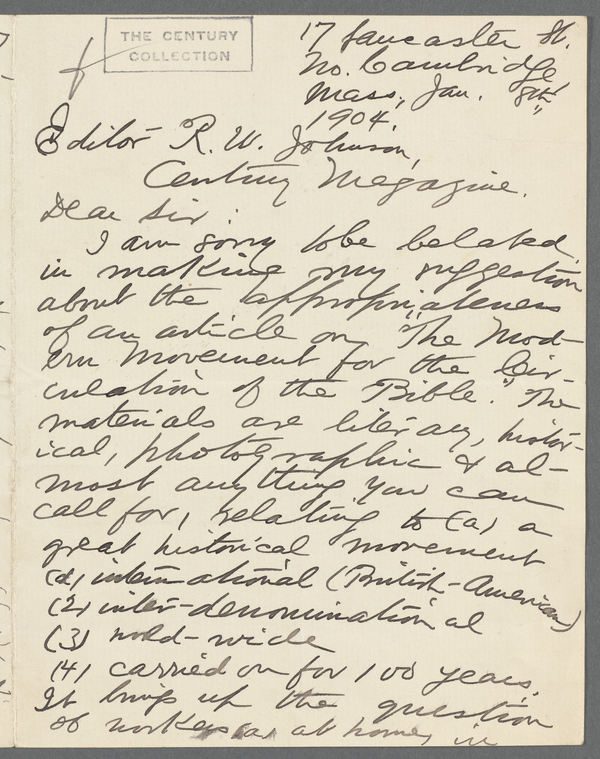 THE CENTURY
COLLECTION
17 Lancaster St.
No. Cambridge
Mass., Jan. 8th,
1904.
Editor R. W. Johnson,
Century Magazine.
Dear Sir:
I am sorry to be belated
in making my suggestion
about the appropriateness
of an article on "The Mod-
ern Movement for the Cir-
culation of the Bible." The
materials are literary, histor-
ical, photographic & al-
most anything you can
call for, relating to (a) a
great historical movement
(1) international (British-American)
(2) inter-denominational
(3) world-wide
(4) carried on for 100 years.
It brings up the question
of workers (a) at home, in